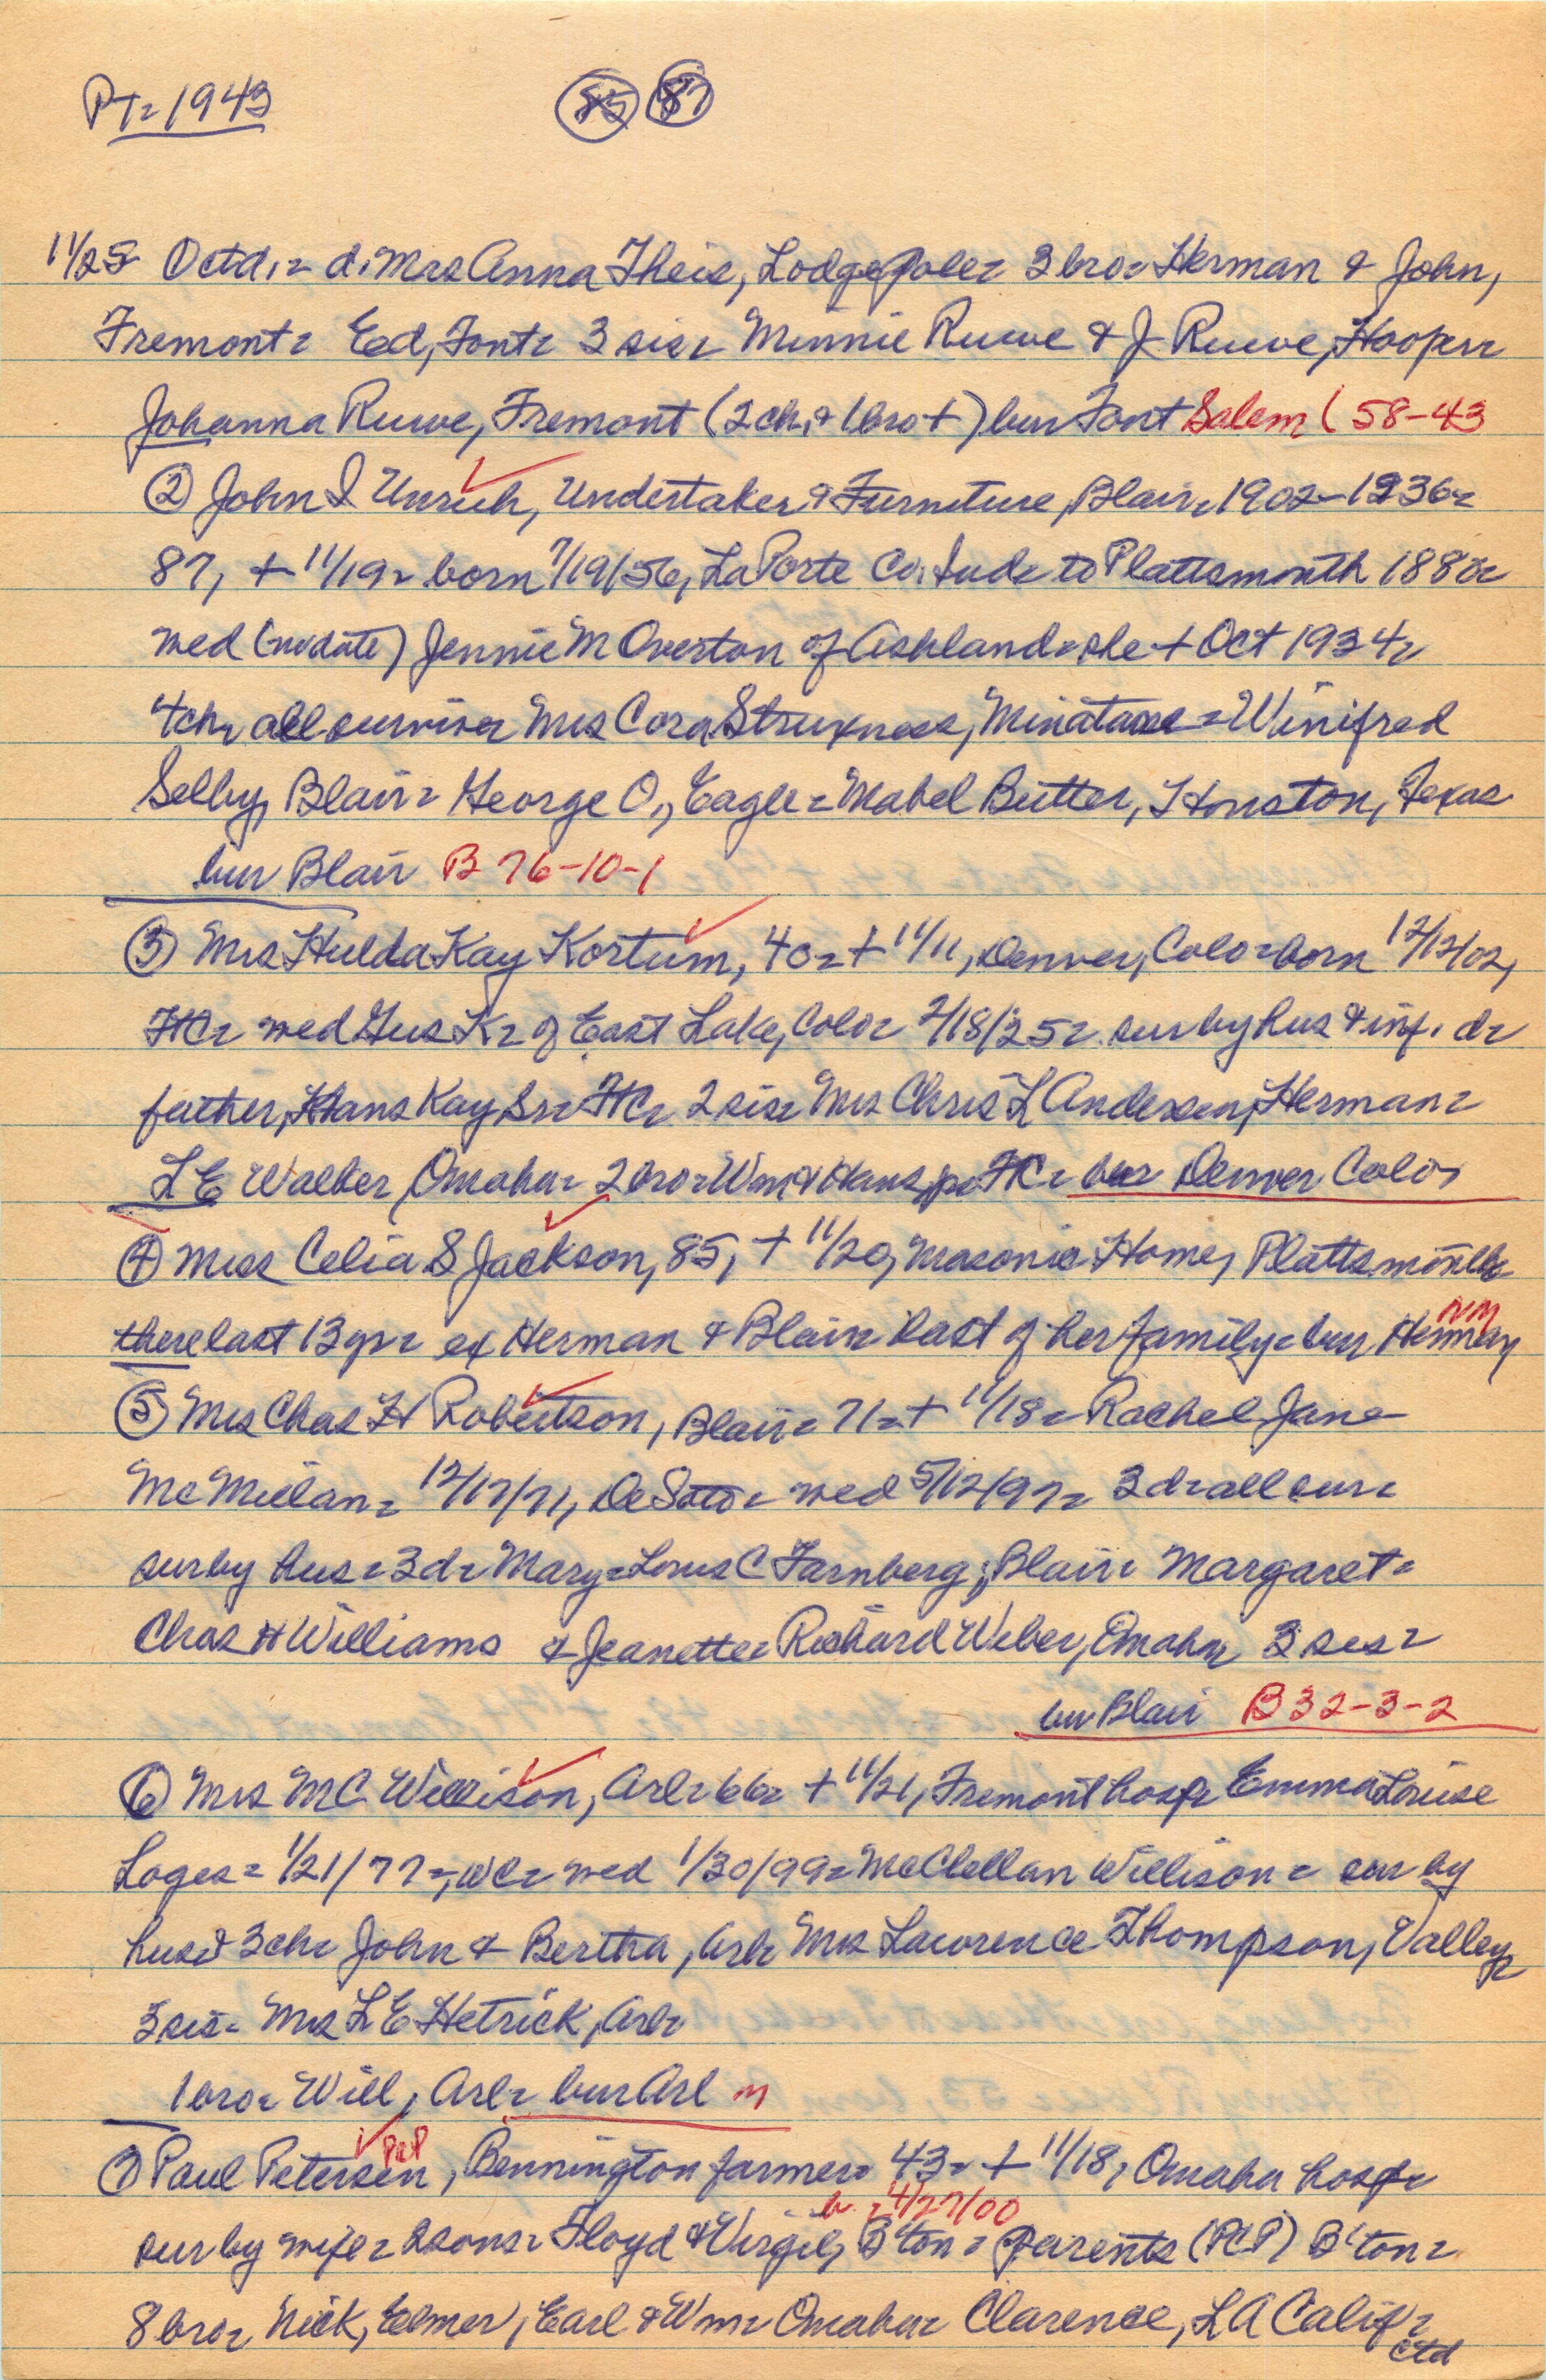 PT= 1943 85 87
11/25 Octd.= d. Mrs Anna Theis, Lodgepole= 3 bro= Herman & John,
Fremont= Ed, Font= 3 sis= Minnie Ruwe & J Ruwe, Hooper=
Johanna Ruwe, Fremont (2 ch. & 1 bro +) bur Font Salem (58-43
② John I Unruh, Undertaker & Furniture, Blair= 1902-1936=
87, + 11/19= born 7/19/56, LaPorte Co. Ind= to Plattsmouth 1880=
wed (no date) Jennie M Overton of Ashland= she + Oct 1934=
4ch= all survive= Mrs Cora Struxness, Minatare= Winifred
Selby, Blair= George O., Eagle= Mabel Butter, Houston, Texas
bur Blair B 76-10-1
③ Mrs Hulda Kay Kortum, 40= + 11/11, Denver, Colo= born 12/12/02,
FtC= wed Gus K= of East Lake, Colo= 2/18/25= sur by hus & inf. d=
father, Hans Kay Sr= FtC= 2 sis= Mrs Chris L Andersen, Herman=
L E Walker, Omaha= 2 bro= Wm & Hans, jr= FtC= bur Denver Colo=
④ Miss Celia S Jackson, 85, + 11/20, Masonic Home, Plattsmouth=
there last 13 yr= ex Herman & Blair= last of her family= bur Herman NM
⑤ Mrs Chas H Robertson, Blair= 71= + 11/18= Rachel Jane
McMillan= 12/17/71, DeSoto= wed 5/12/97= 3 d= all sur=
sur by hus= 3 d= Mary= Louis C Farnberg, Blair= Margaret=
Chas H Williams & Jeanette= Richard Weber, Omaha= 3 sis=
bur Blair B 32-3-2
⑥ Mrs MC Willison, Arl= 66= + 11/21, Fremont hosp= Emma Louise
Loges= 1/21/77=, WC= wed 1/30/99= McClellan Willison= sur by
hus & 3 ch= John & Bertha, Arl= Mrs Lawrence Thompson, Valley=
3 sis= Mrs L E Hetrick, Arl=
1 bro= Will, Arl= bur Arl M
⑦ Paul Petersen, PCP Bennington farmer= 43= + 11/18, Omaha hosp=
b. = 4/27/00
sur by wife= 2 sons= Floyd & Virgil, B'ton= parents (PCP) B'ton=
8 bro= Nick, Elmer, Earl & Wm= Omaha= Clarence, LA Calif=
ctd